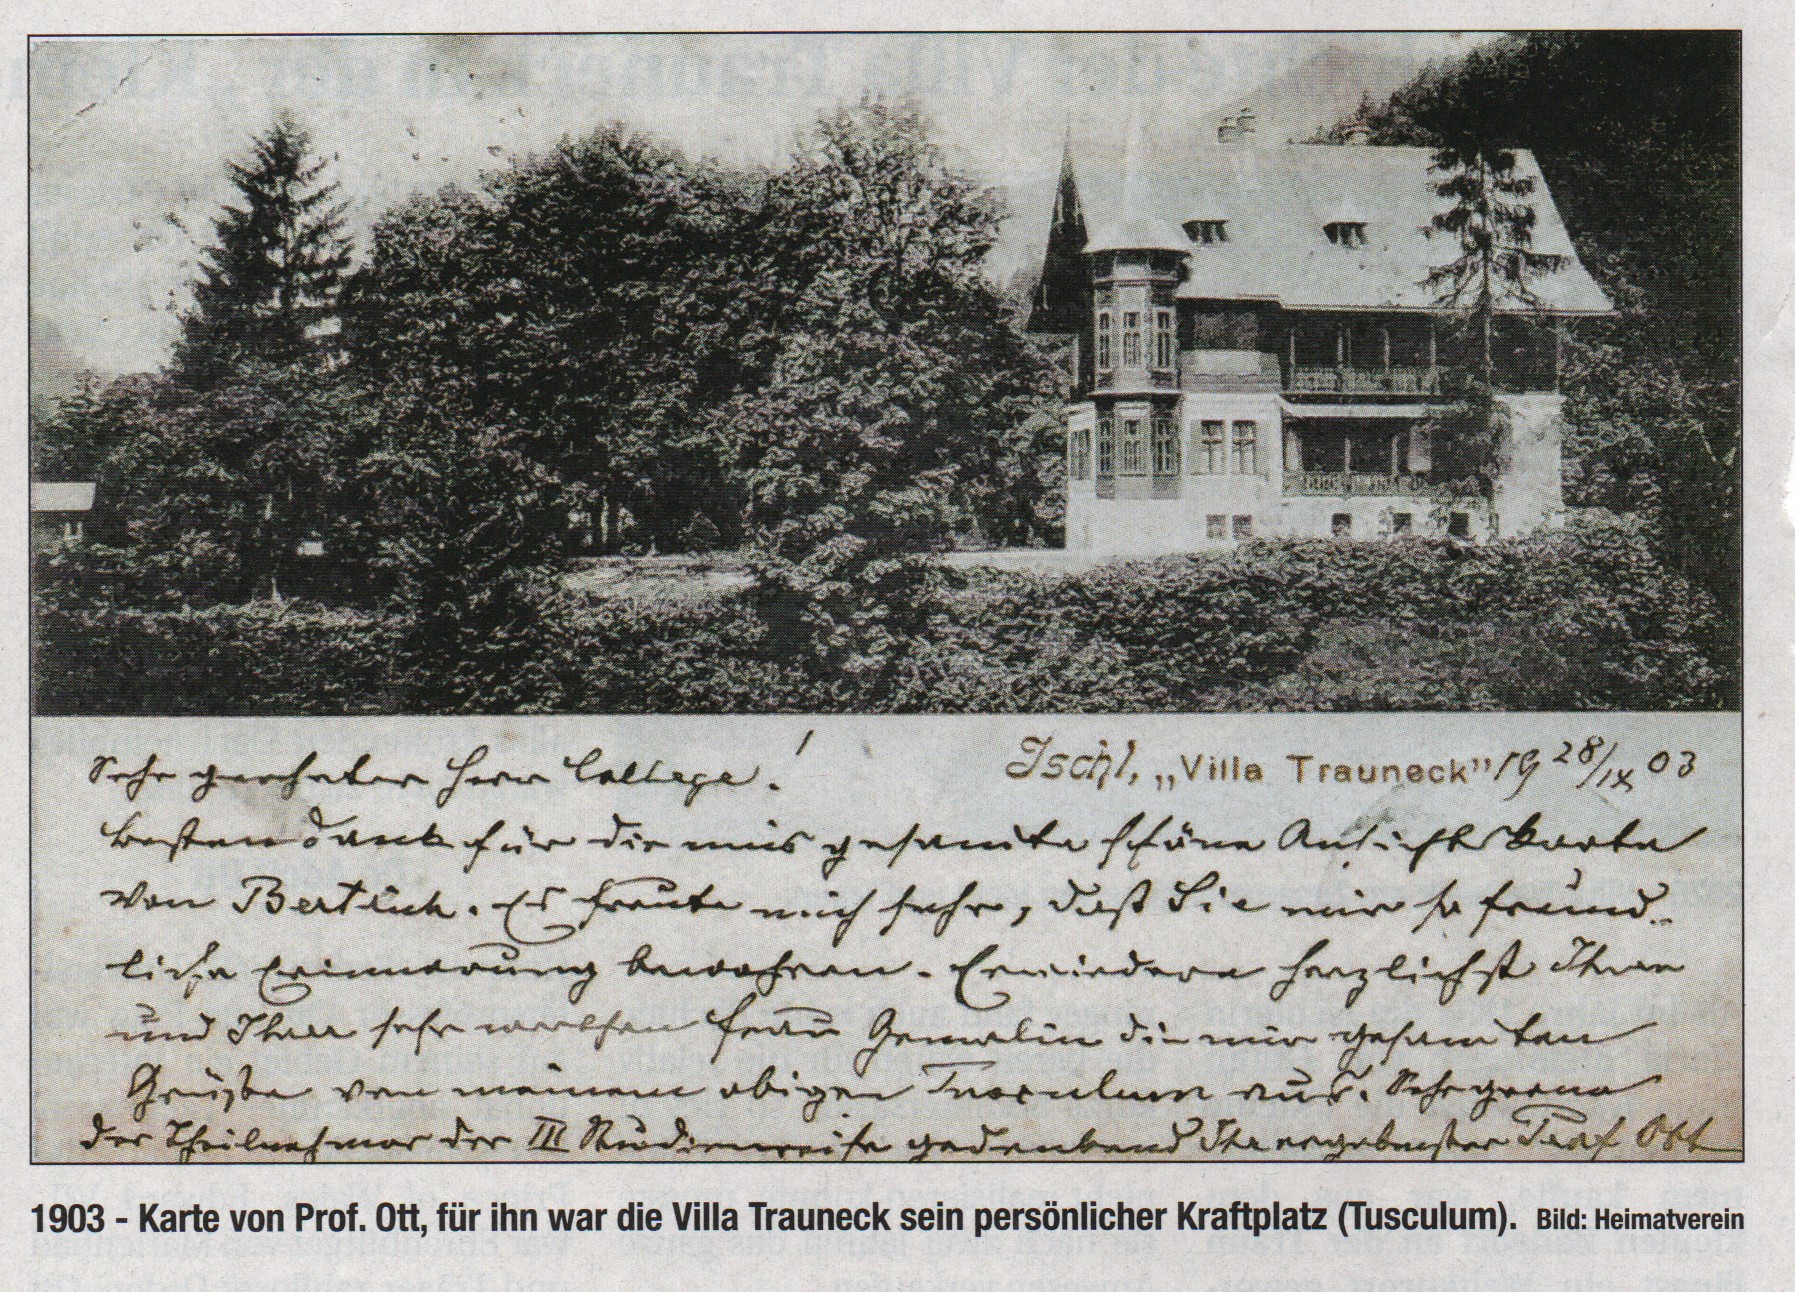 Ischl, „Villa Trauneck" 19 28/IX 03
Sehr geehrter Herr College!
Besten Dank für die mir gesandte schöne Ansichtskarte
von Bertrich. Es freute mich sehr, daß Sie mir so freund-
liche Erinnerung bewahren. Erwiedere herzlichst Ihre
und Ihrer sehr werthen Frau Gemalin die mir gesandten
Grüße von meinem obigen Tusculum aus. Sehr gerne
der Theilnehmer der III Studienreise gedenkend Ihr ergebenster Prof Ott
1903 - Karte von Prof. Ott, für ihn war die Villa Trauneck sein persönlicher Kraftplatz (Tusculum). Bild: Heimatverein